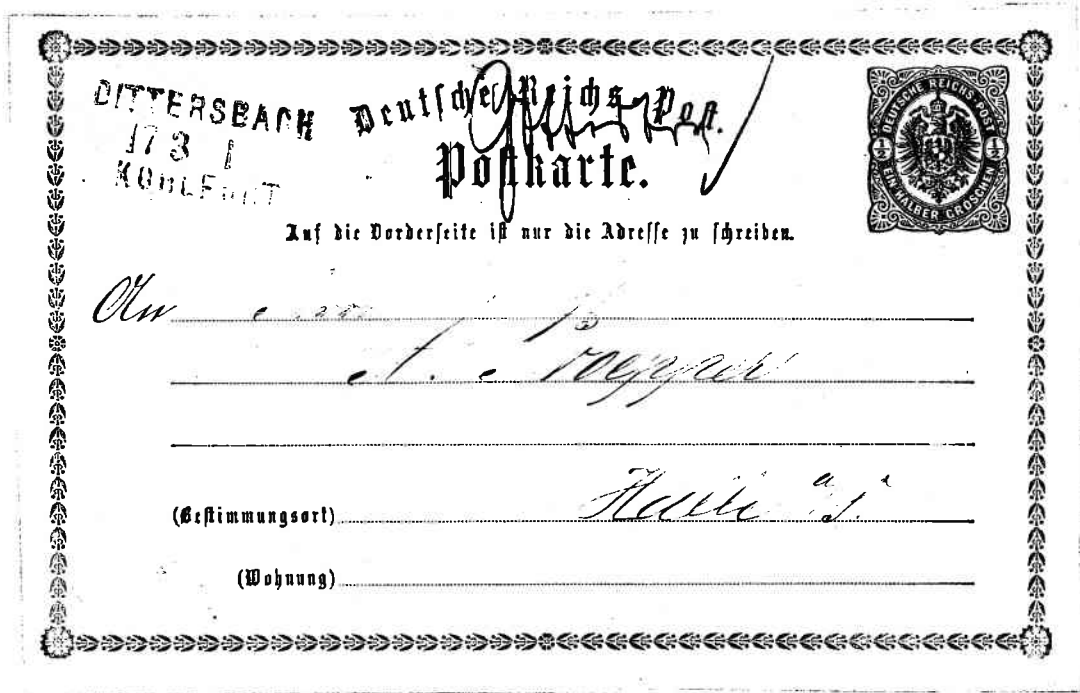 DITTERSBACH
17 3 I
KOHLFURT
Deutsche Reichs-Post.
Postkarte.
DEUTSCHE REICHS-POST
½ ½
EIN HALBER GROSCHEN
Auf die Vorderseite ist nur die Adresse zu schreiben.
An
A.
(Bestimmungsort) Halle a. S.
(Wohnung)